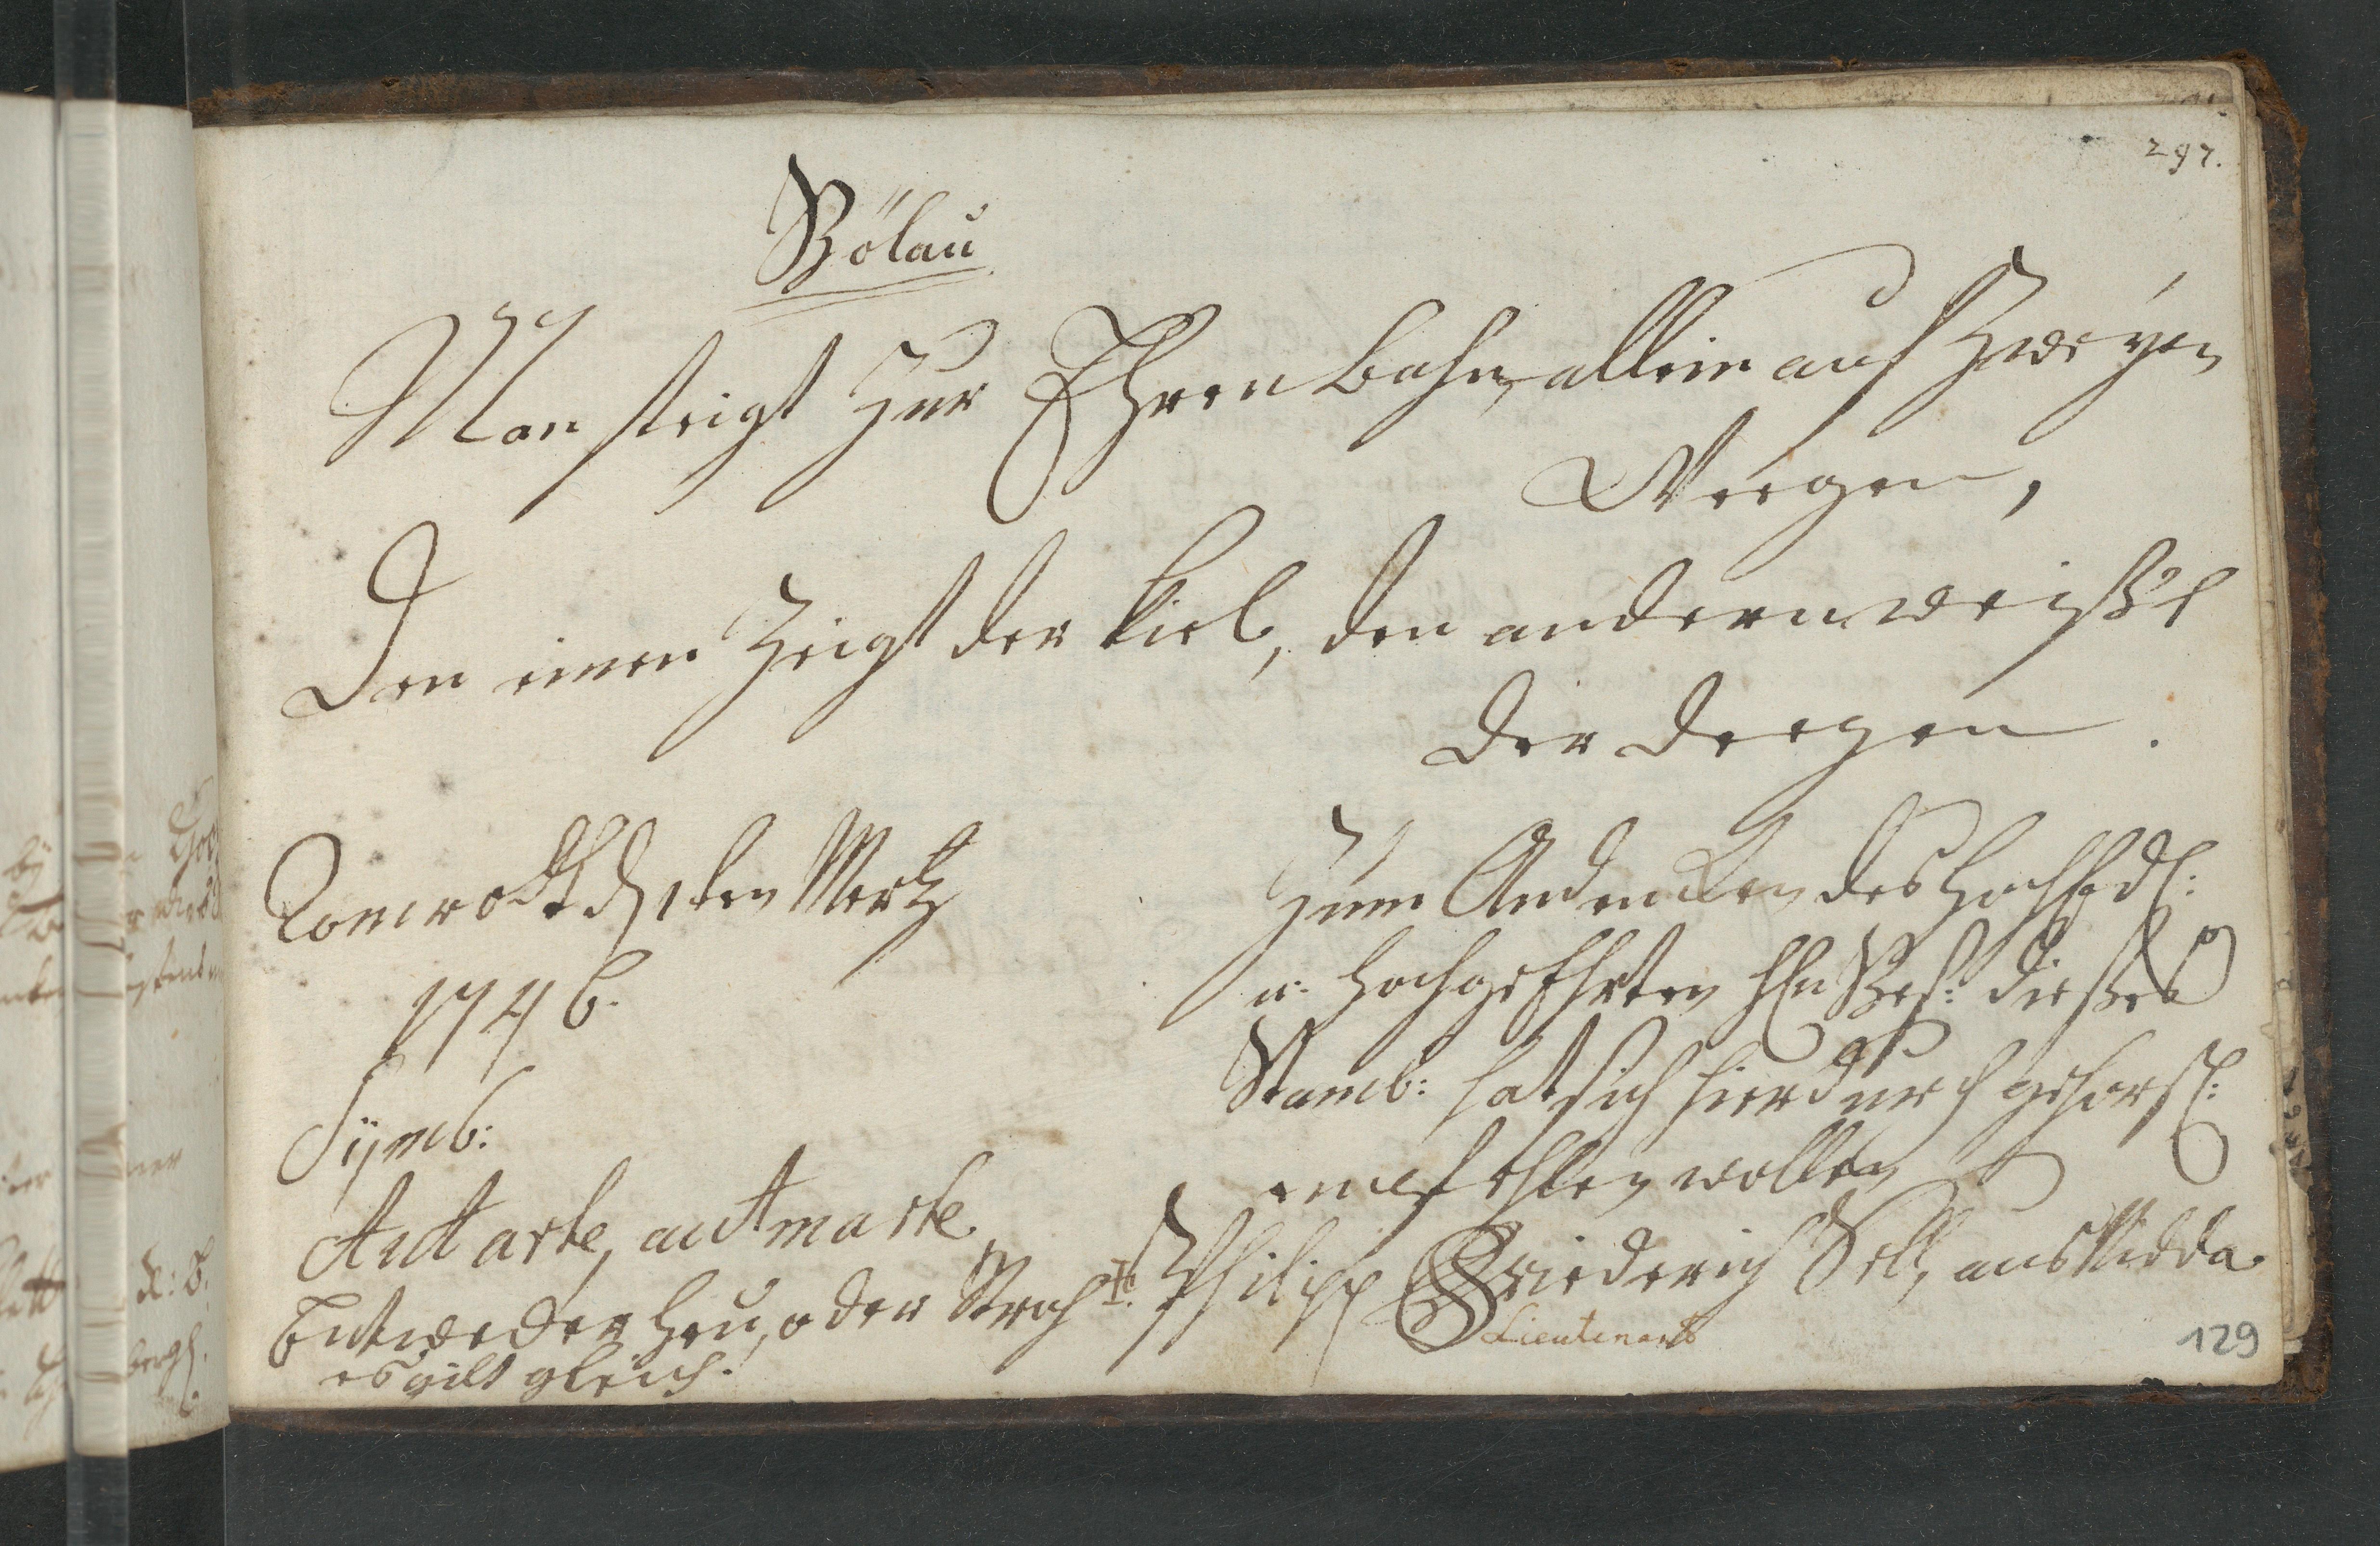 297.
Bölau
Man steigt zur Ehren bahn, allein auf zweÿen
Weegen,
Den einen Zeigt der Kiel, den andern weißt
der Deegen.
Romrodt d 1ten Mertz
1746.
Sÿmb:
Aut arte, aut marte
Entweder Heu, oder Stroh
es gilt gleich.
Zum Andencken des HochEdl:
u. HochgeEhrten HEn Bes: dießes
Stamb: hat sich hierdurch gehorsl:
empfehlen wollen
Philipp Friederich Sell, aus Nidda.
Lieutenant
129